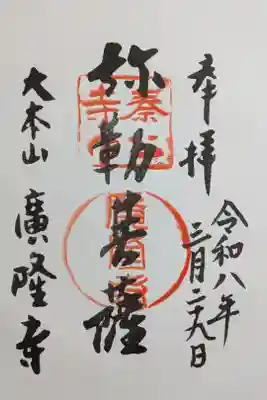 奉拝
令和八年
三月二十九日
弥勒菩薩
大本山 廣隆寺